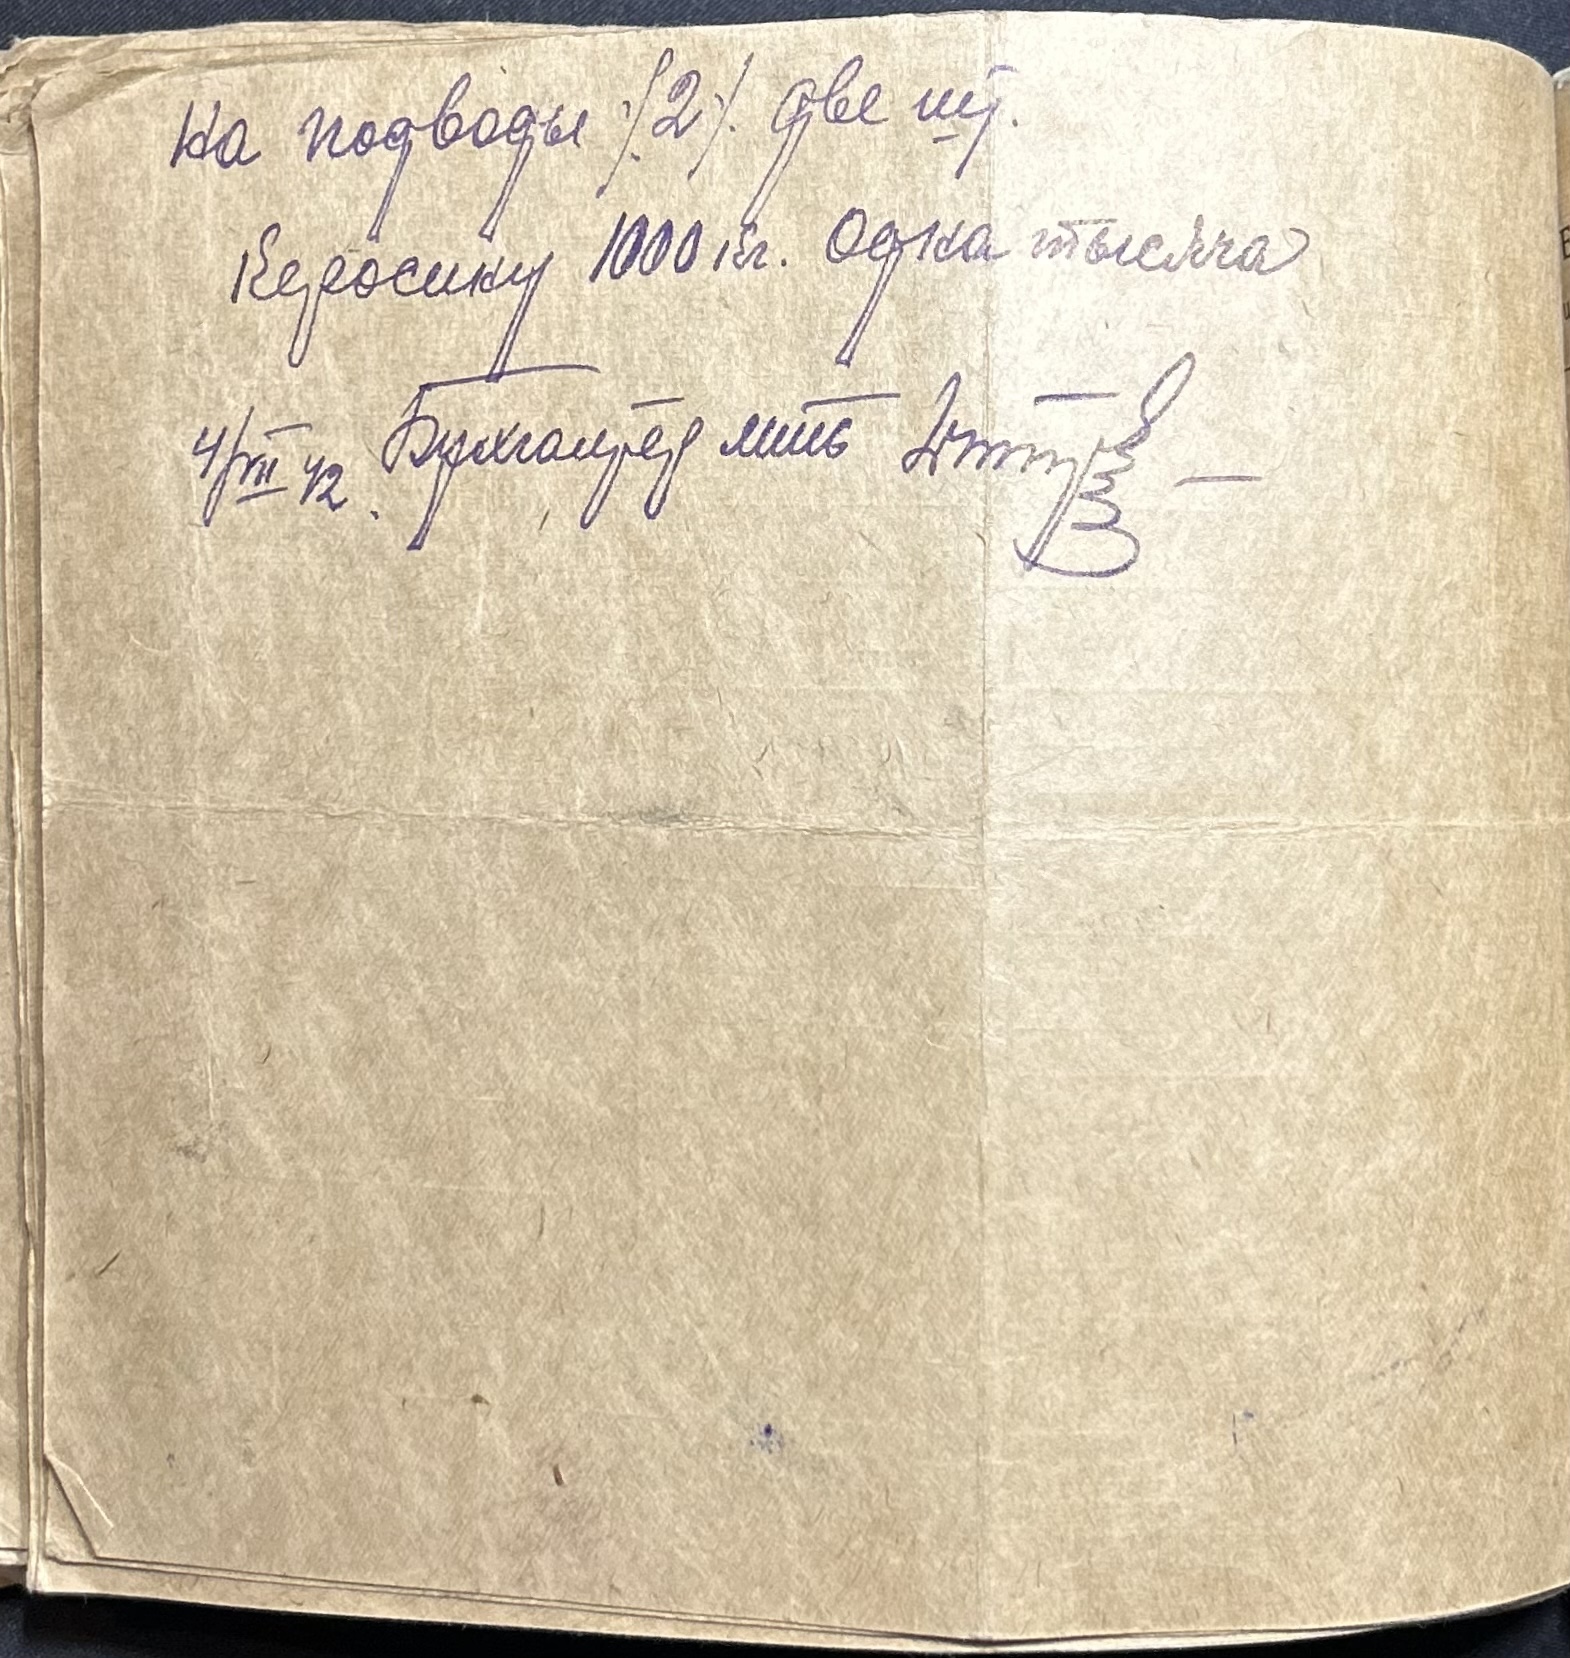 На подводы /2/. две шт.
Керосину 1000 кг. Одна тысяча
4/VIII 42. Бухгалтер